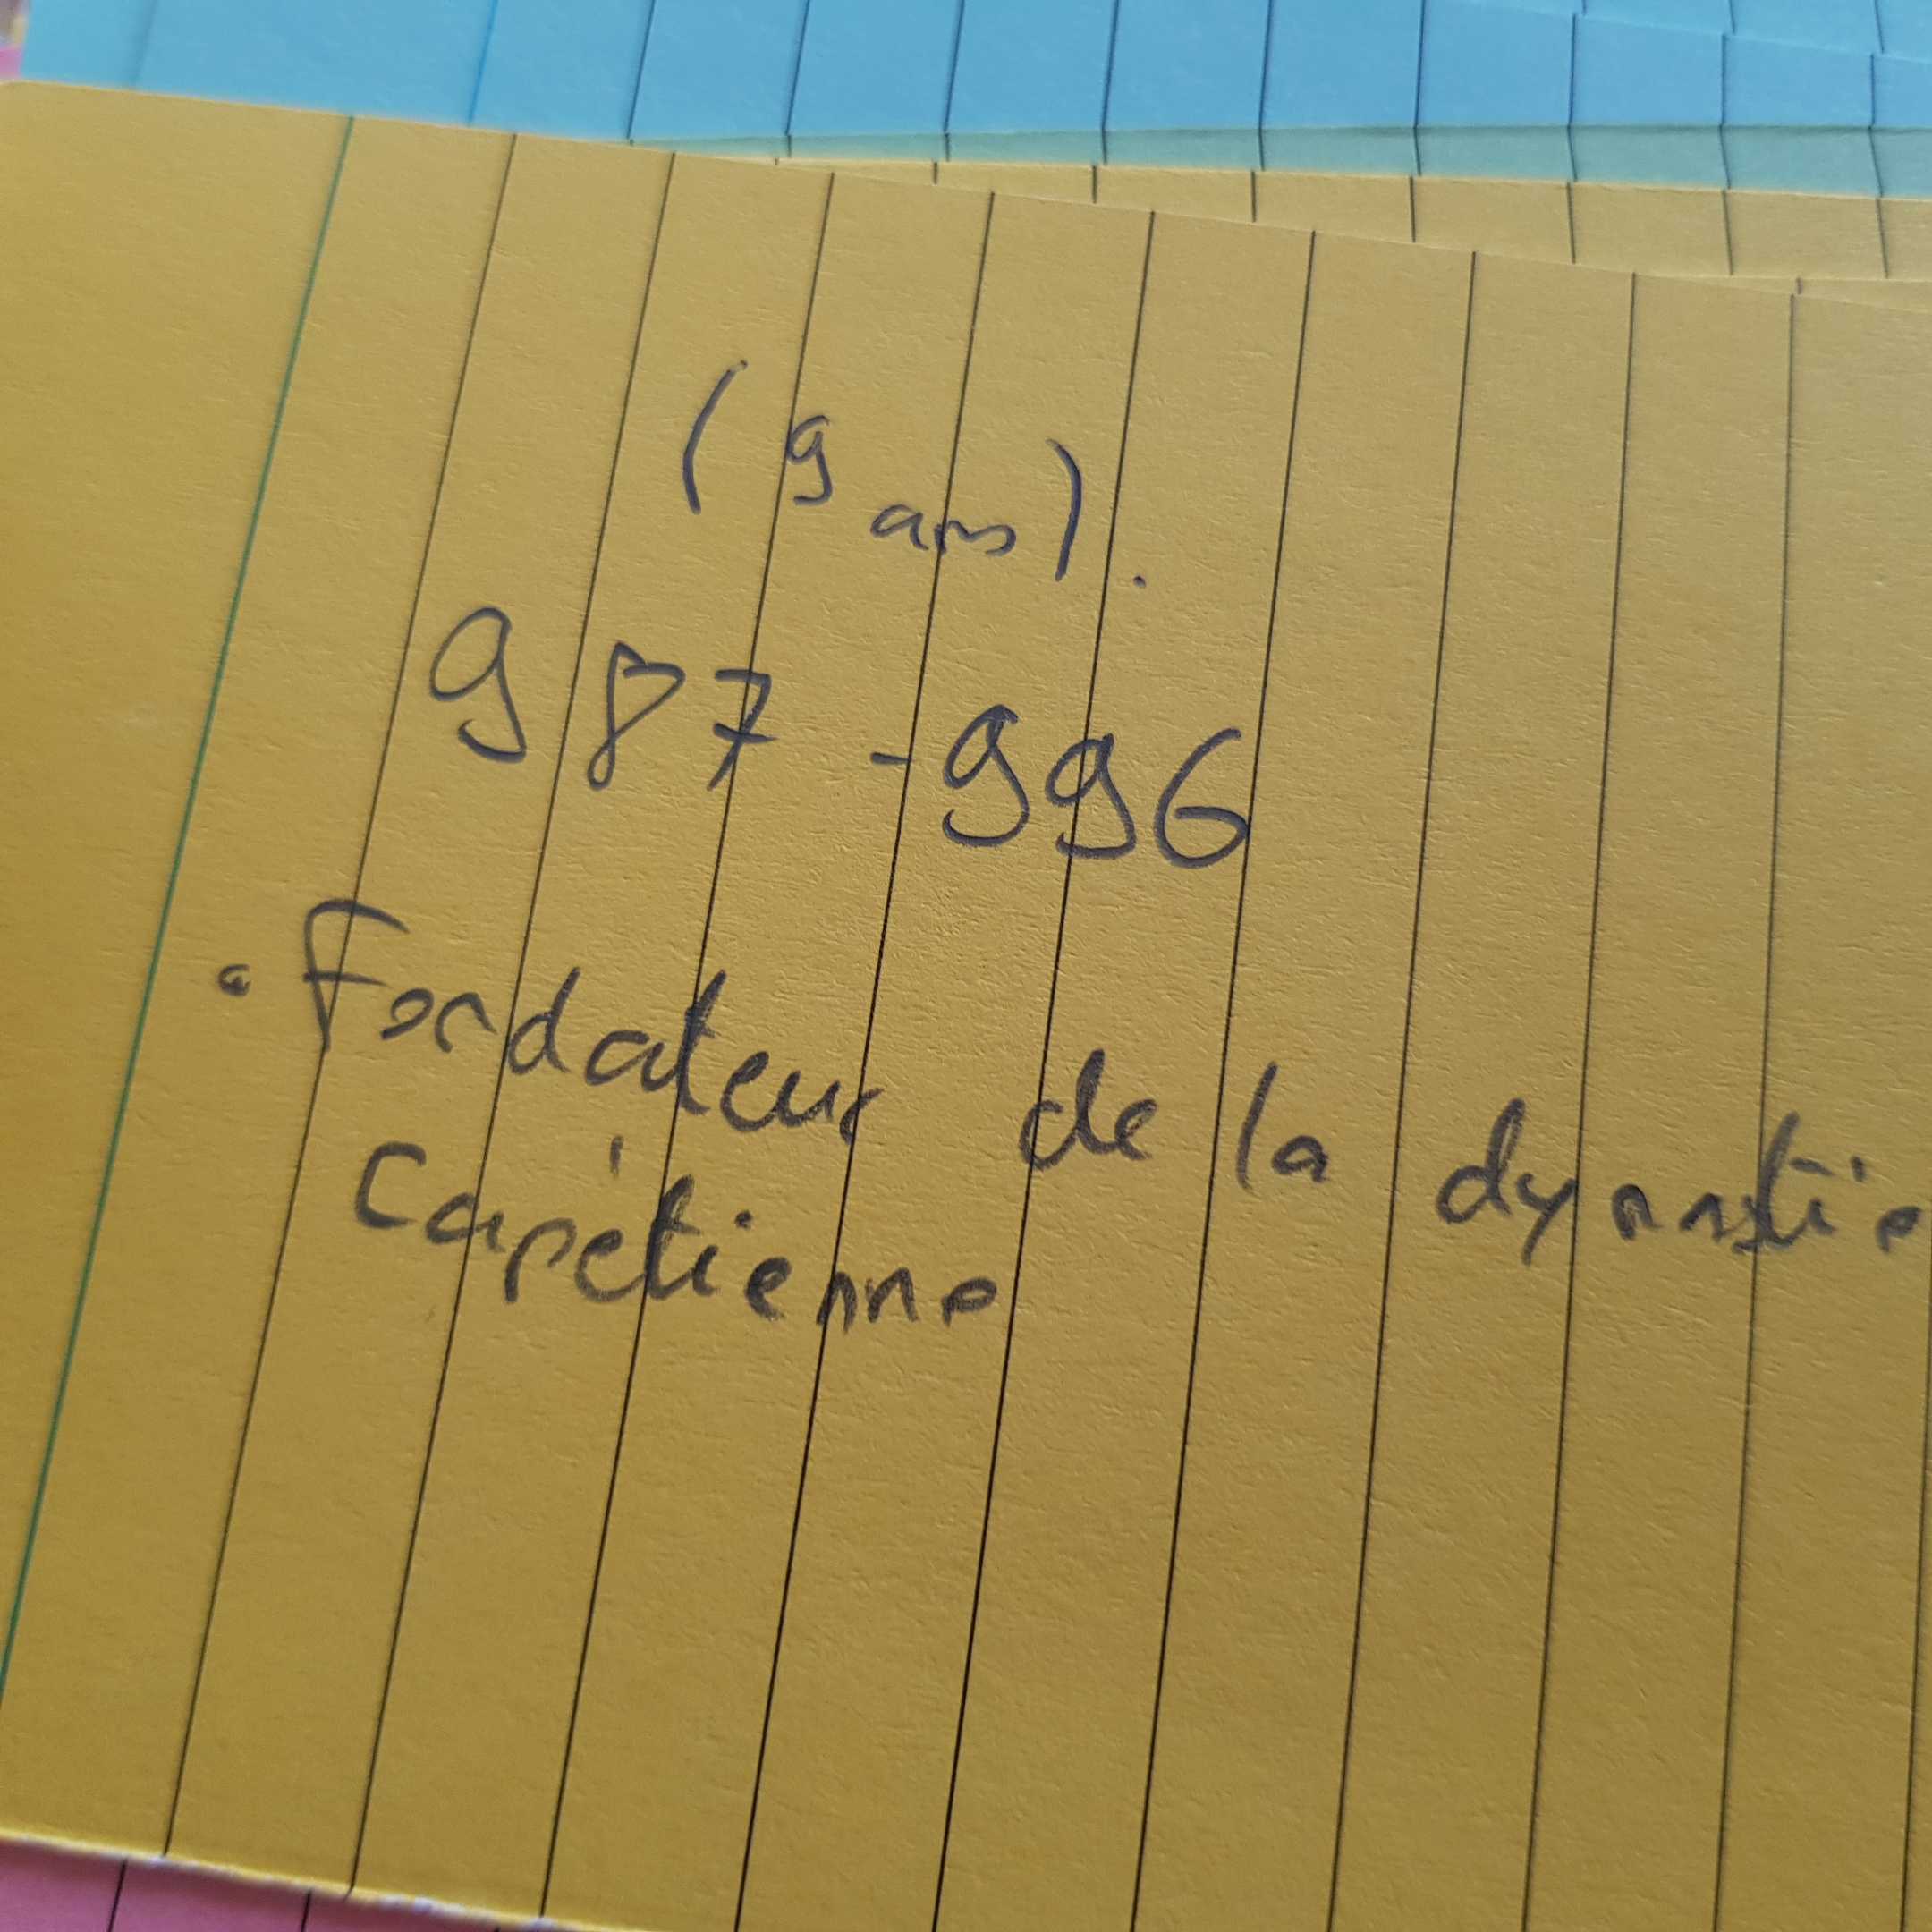 (9 ans).
987-996
• Fondateur de la dynastie
Capétienne